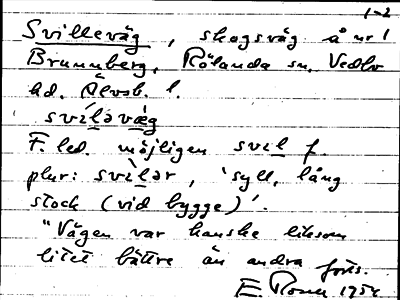 1-2
Svilleväg, skogsväg å nr 1
Brunnberg, Rölanda sn, Vedbo
hd. Älvsb. l.
svìləvæ̀g
F. led. möjligen svil f.
plur: svìlər, 'syll, lång
stock (vid bygge)'.
"Vägen var kanske liksom
litet bättre än andra förs.
E 1954